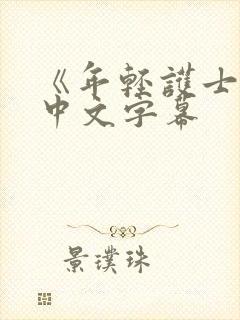 《年轻護士
中文字幕
景璞珠